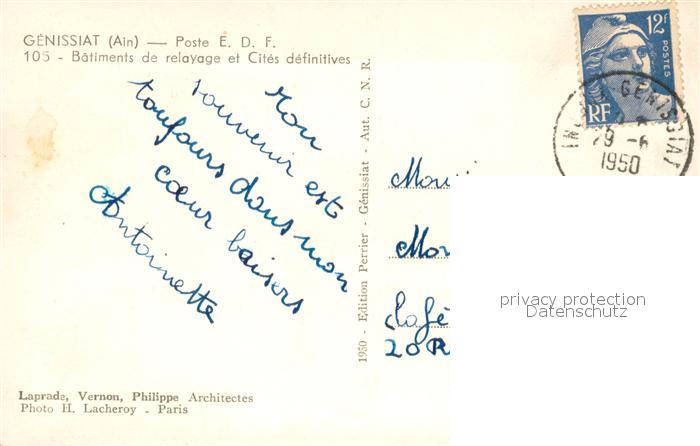 GÉNISSIAT (Ain) — Poste E. D. F.
105 - Bâtiments de relayage et Cités définitives
Mon
souvenir est
toujours dans mon
cœur baisers
Antoinette
Laprade, Vernon, Philippe Architectes
Photo H. Lacheroy - Paris
1950 - Edition Perrier - Génissiat - Aut. C. N. R.
12F
POSTES
RF
GÉNISSIAT
1950
20 R
privacy protection
Datenschutz